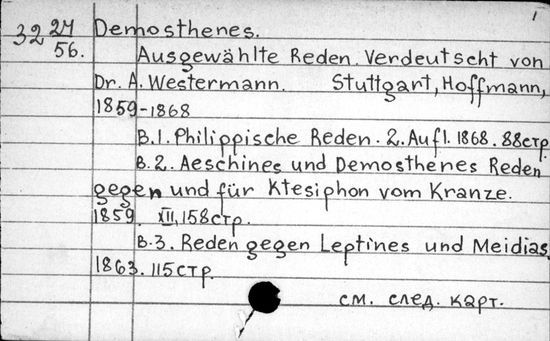 1
32 27/56.
Demosthenes.
Ausgewählte Reden. Verdeutscht von
Dr. A. Westermann. Stuttgart, Hoffmann,
1859-1868
B.1. Philippische Reden. 2. Aufl. 1868. 88стр.
B.2. Aeschines und Demosthenes Reden
gegen und für Ktesiphon vom Kranze.
1859. XII, 158стр.
B.3. Reden gegen Leptines und Meidias.
1863. 115стр.
см. след. карт.